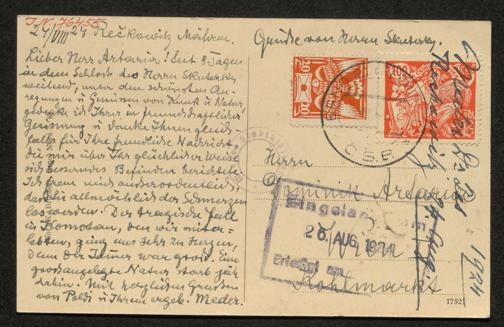 I.N. 76455
24/VIII 24 Rečkowitz Mähren.
Grüße von Herrn Skutezky.
Lieber Herr Artaria! Seit 8 Tagen
in dem Schloß des Herrn Skutezky
weilend, unter den schönsten An-
regungen u Genüssen von Kunst u Natur,
Ihrer in freundschaftlicher
Gesinnung u danke Ihnen gleich-
falls für Ihre freundliche Nachricht,
die mir über Ihr glücklicher Weise
besseres Befinden berichtete.
Ich freue mich außerordentlich,
daß Sie allmählich der Schmerzen
los werden. Der tragische Fall
in Komotau, den wir mit-
erlebten, ging uns sehr zu Herzen,
denn der Jammer war groß. Ein
großangelegte Natur starb jäh
dahin. Mit herzlichen Grüßen
von Poldi u Ihrem ergeb. Meder.
Herrn
Dominik Artaria
Wien
Kohlmarkt
Eingelangt am
26. AUG. 1924
Erledigt am
Č.S.R.
20
100
1924
17521